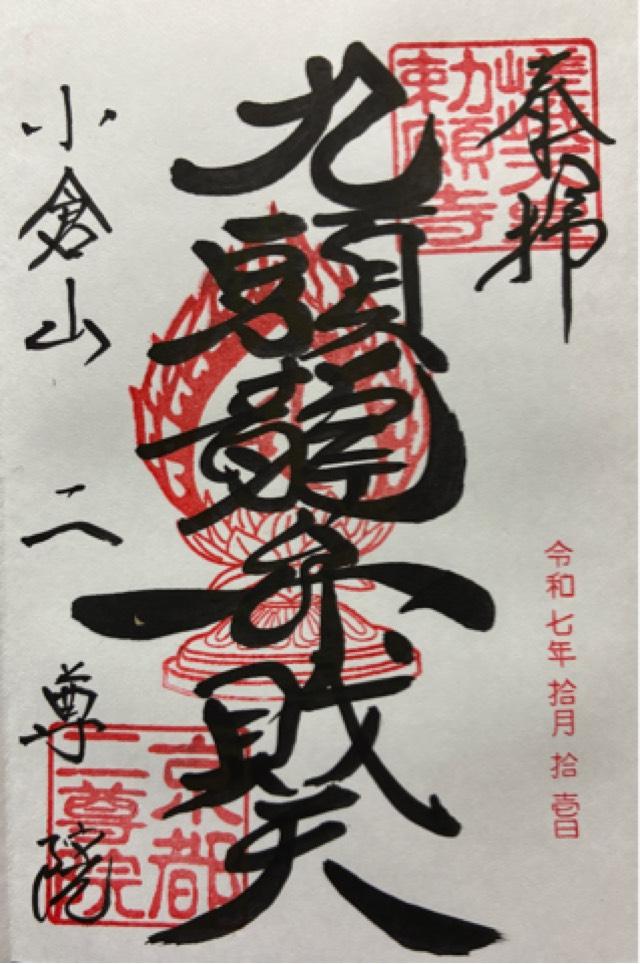 奉拝
嵯峨天皇
勅願寺
令和七年 拾月 拾壱日
九頭龍弁財天
小倉山 二尊院
京都
二尊院